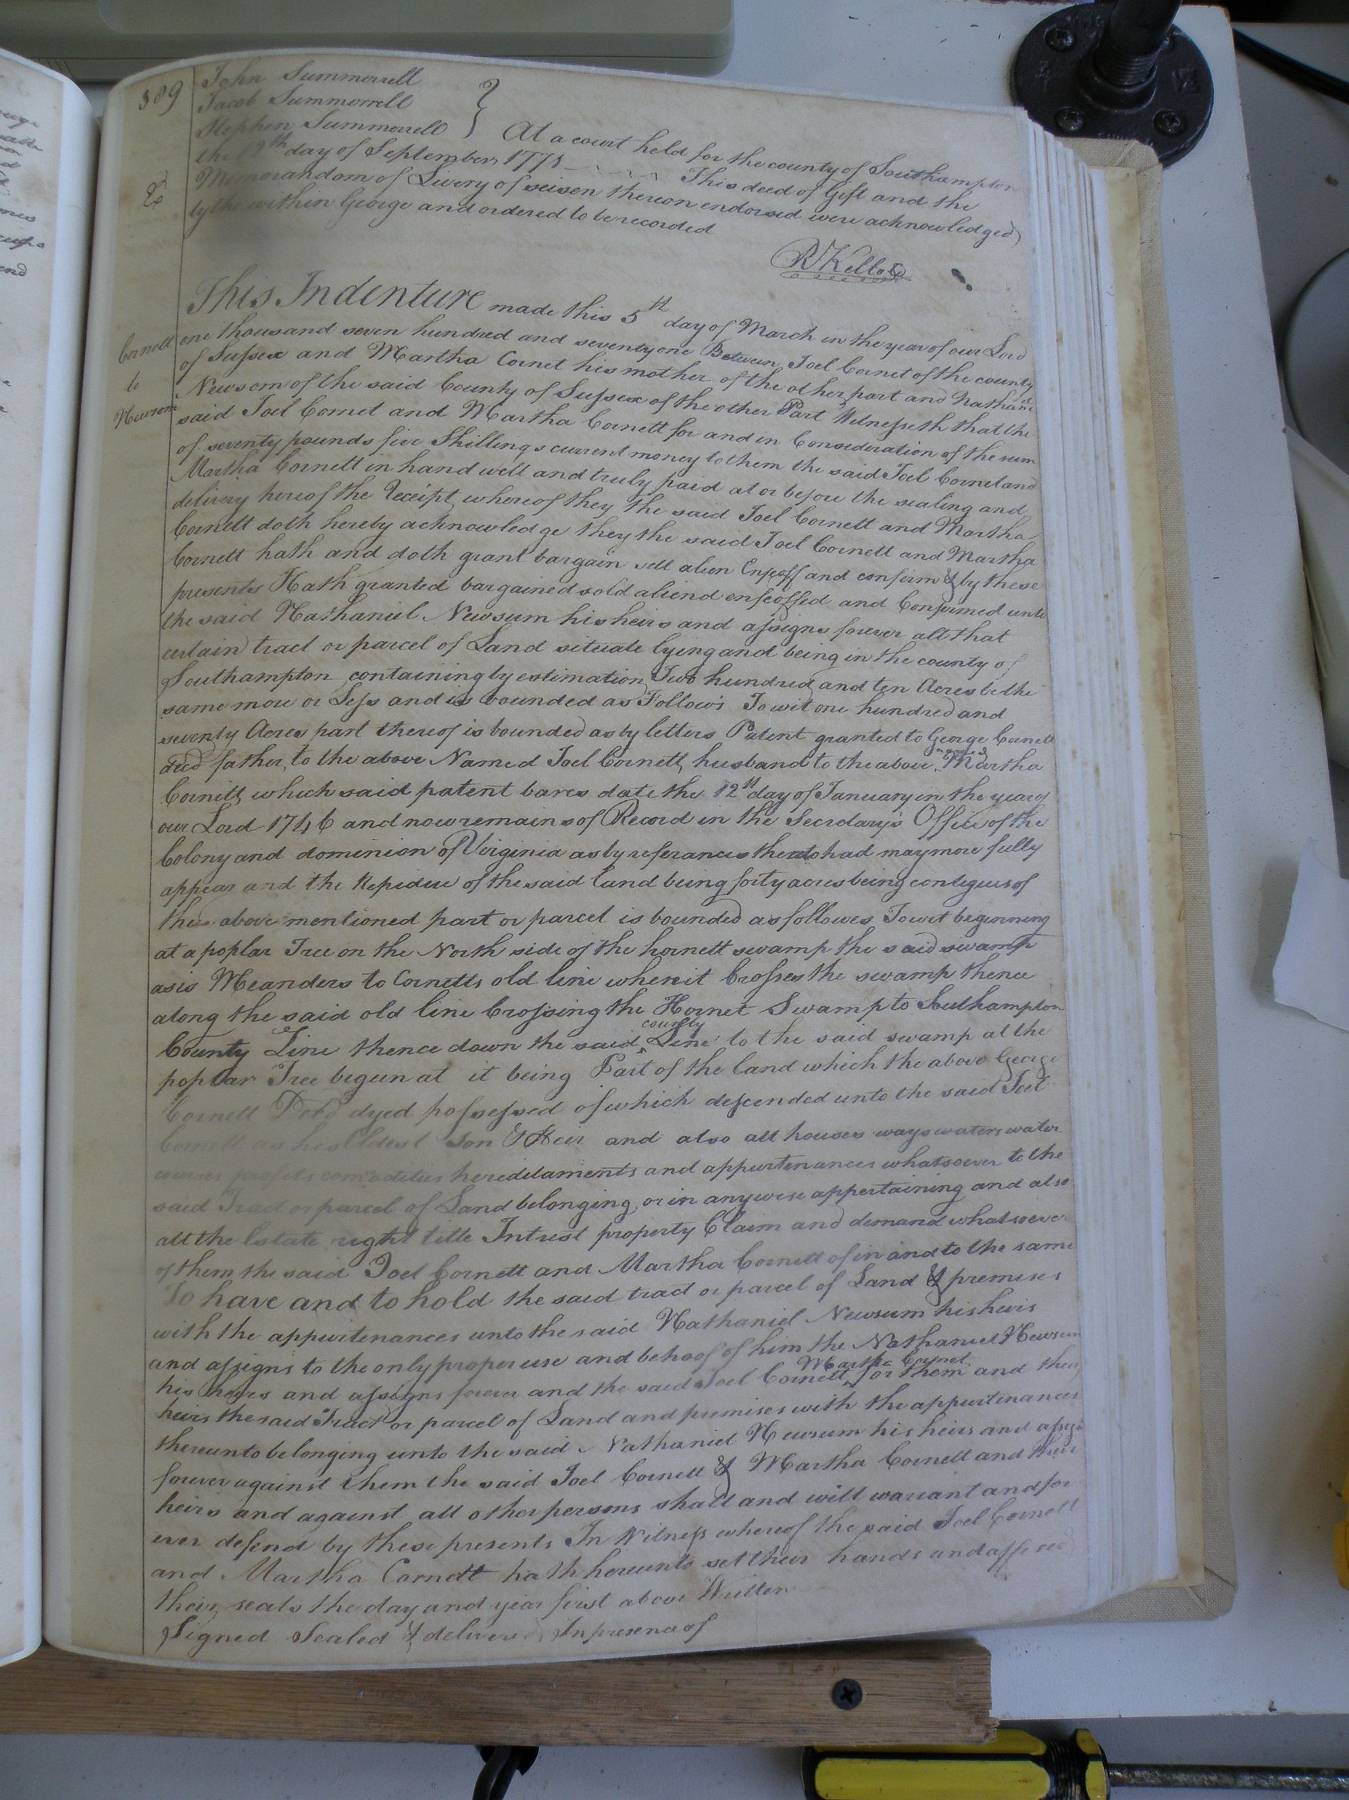 389
John Summerrell
Jacob Summorrell
Stephen Summerrell } At a court held for the county of Southampton
the 12th day of September 1771 This deed of Gift and the
Memorandom of Livery of seisen thereon endorsed were acknowledged
by the within George and ordered to be recorded
Ex
R Kello
This Indenture made this 5th day of March in the year of our Lord
one thousand seven hundred and seventy one Between Joel Cornet of the county
of Sussex and Martha Cornet his mother of the other part and Nathaniel
Newsom of the said County of Sussex of the other Part Witnesseth that the
Cornett
to
Newsom
said Joel Cornet and Martha Cornett for and in Consideration of the sum
of seventy pounds five Shillings current money to them the said Joel Cornel and
Martha Cornett in hand well and truly paid at or before the sealing and
delivery hereof the Receipt whereof they the said Joel Cornett and Martha
Cornett doth hereby acknowledge they the said Joel Cornett and Martha
Cornett hath and doth grant bargain sell alien Enfeoff and confirm & by these
presents Hath granted bargained sold aliend enfeoffed and Confirmed unto
the said Nathaniel Newsum his heirs and assigns forever all that
certain tract or parcel of Land situate lying and being in the county of
Southampton containing by estimation Two hundred and ten Acres be the
same more or Less and is bounded as Follows To wit one hundred and
seventy Acres part thereof is bounded as by letters Patent granted to George Cornett
decd father, to the above Named Joel Cornett, husband to the above named Martha
Cornett which said patent bares date the 12th day of January in the year of
our Lord 1746 and now remains of Record in the Secretary's Office of the
Colony and dominion of Virginia as by referances thereto had may more fully
appear and the Residue of the said land being forty acres being contiguis of
the above mentioned part or parcel is bounded as followes To wit beginning
at a poplar Tree on the North side of the hornett swamp the said swamp
as is Meanders to Cornetts old line when it Crosses the swamp thence
along the said old line Crossing the Hornet Swamp to Southampton
County Line thence down the said county Line to the said swamp at the
poplar Tree begun at it being Part of the land which the above George
Cornett Decd dyed possessed of which descended unto the said Joel
Cornett as his eldest Son & Heir and also all houses ways waters water
courses profits comodities hereditaments and appurtenances whatsoever to the
said Tract or parcel of Land belonging, or in any wise appertaining and also
all the Estate right title Intrest property Claim and demand whatsoever
of them the said Joel Cornett and Martha Cornett of in and to the same
To have and to hold the said tract or parcel of Land & premises
with the appurtenances unto the said Nathaniel Newsum his heirs
and assigns to the only proper use and behoof of him the Nathaniel Newsum
his heirs and assigns forever and the said Joel Cornett Martha Cornet for them and their
heirs the said Tract or parcel of Land and premises with the appurtenances
thereunto belonging unto the said Nathaniel Newsum his heirs and assigns
forever against them the said Joel Cornett & Martha Cornett and their
heirs and against all other persons shall and will warrant and for
ever defend by these presents In Witness whereof the said Joel Cornett
and Martha Cornett hath hereunto set their hands and affixed
their seals the day and year first above Written
Signed Sealed & delivered In presence of